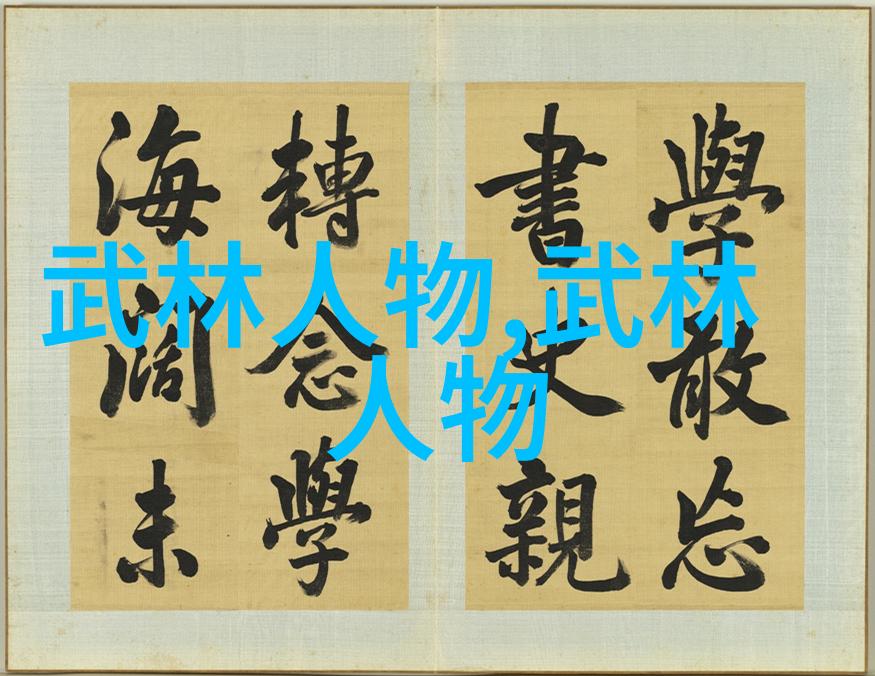 學敢忘
書史親
轉念學
海闊未
武林人物,武林
人物